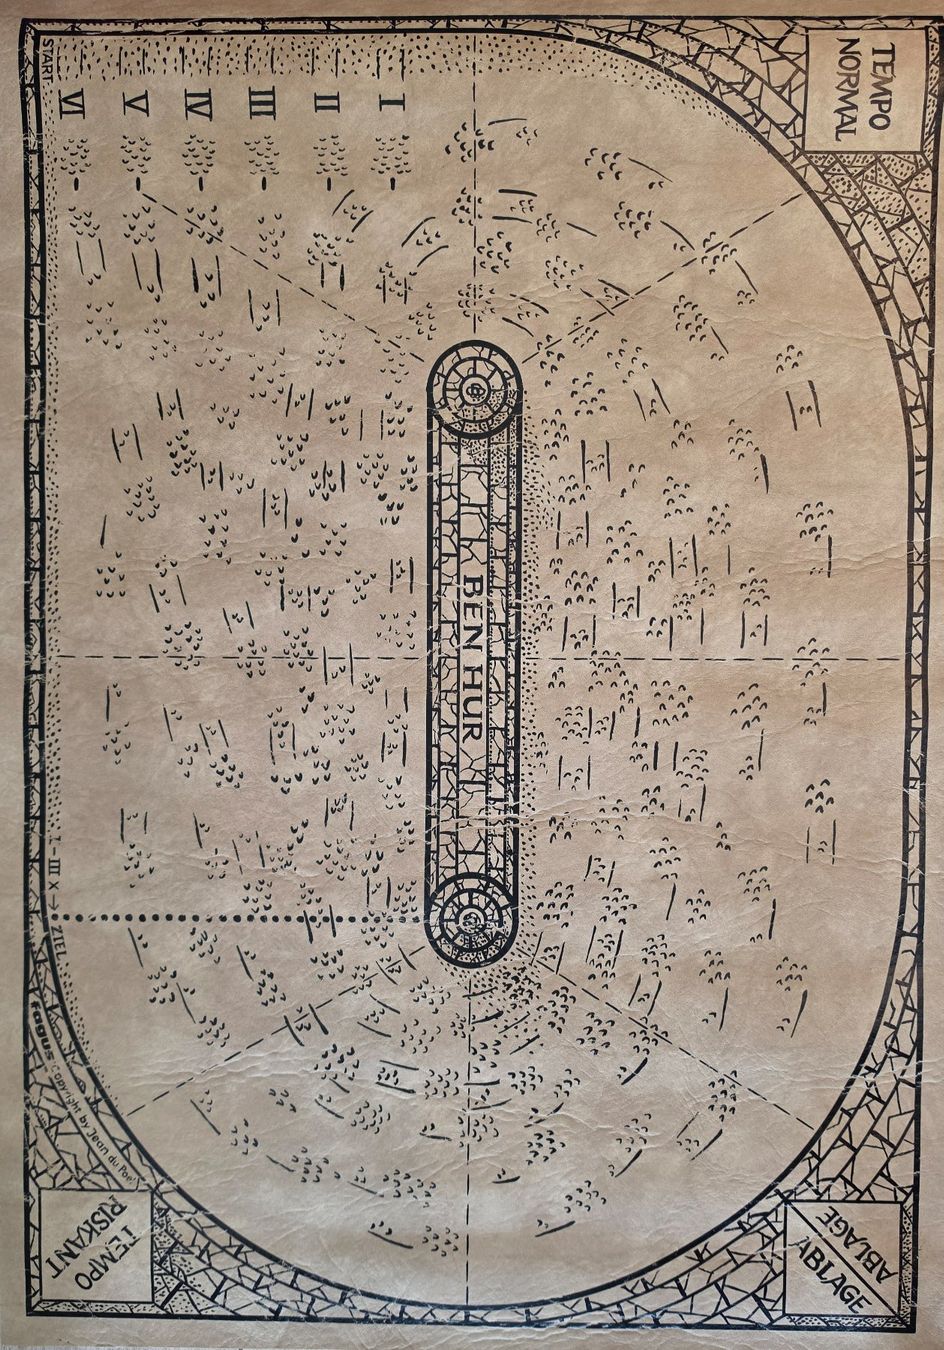 START
VI
V
IV
III
II
I
TEMPO
NORMAL
BEN HUR
I-III x → ZIEL
fagus Copyright by Jean du Poël
TEMPO
RISKANT
ABLAGE
ABLAGE